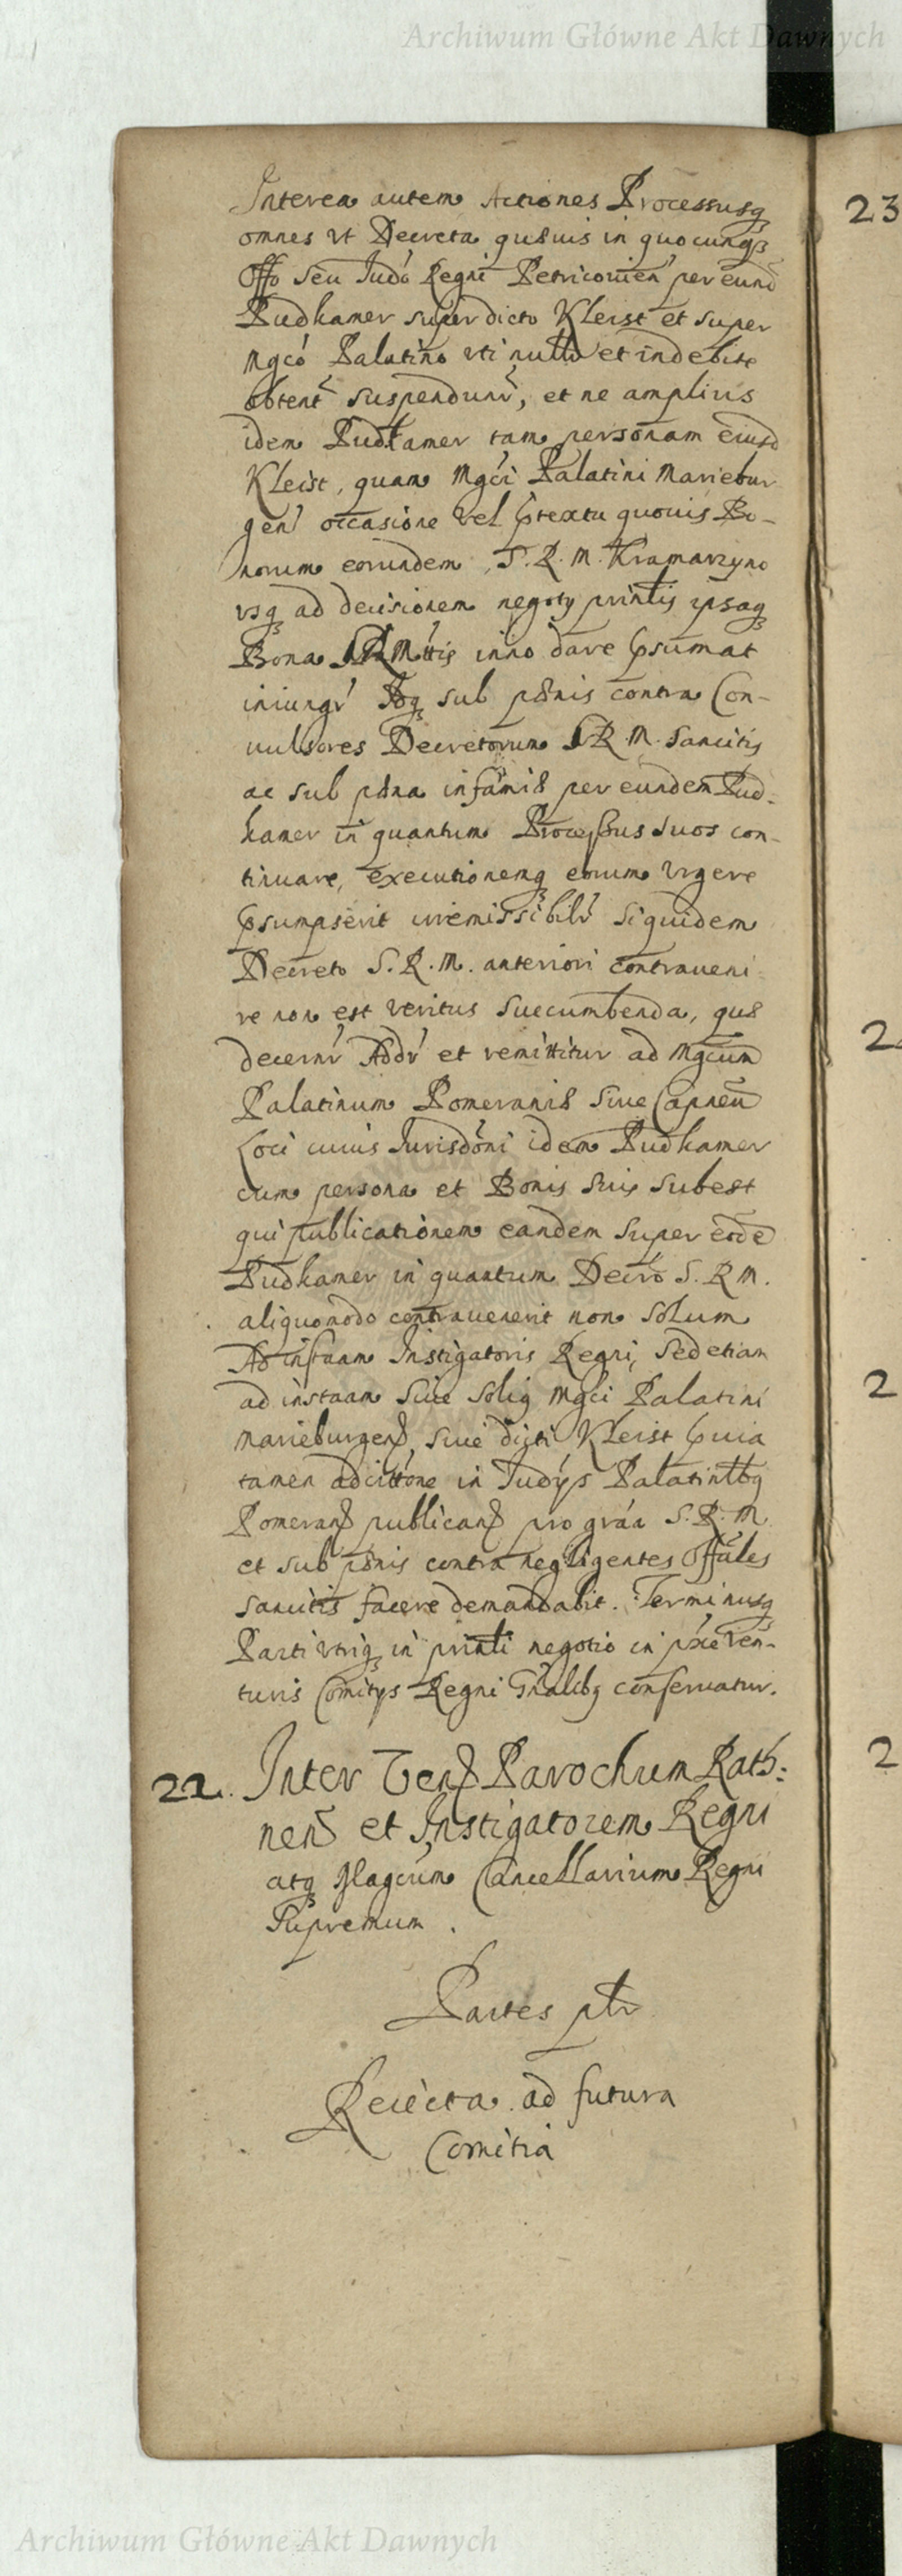 Archiwum Główne Akt Dawnych
Interea autem Actiones Processusq
omnes ut Decreta quæuis in quocunqȝ
Offo seu Judo Regni Petricouien per eund
Pudkamer super dicto Kleist et super
Mgco Palatino uti nulla et indebite
obtent suspendunr, et ne amplius
idem Pudkamer tam personam eiusd
Kleist, quam Mgci Palatini Mariebur
gen occasione vel prætextu quouis Bo-
norum eorundem S. R. M. Kramarzyno
usq ad decisionem negoty printis ipsaq
Bona S R Mttis inno dare præsumat
iniungr Idq sub pænis contra Con-
uulsores Decretorum S R. M. Sancitis
ac sub pæna infamiæ per eundem Pud-
kamer in quantum Processus suos con-
tinuare, executionemq eorum urgere
præsumpserit irremissibilr siquidem
Decreto S. R. M. anteriori contraueni
re non est veritus succumbenda, quæ
decernr Addr et remittitur ad Mgcum
Palatinum Pomeraniæ siue Capneu
Loci cuius Jurisdoni idem Pudkamer
cum persona et Bonis suis subest
qui publicationem eandem super eode
Pudkamer in quantum Decro S. R M.
aliquomodo contrauenerit non solum
Ad instaam Instigatoris Regni, sed etiam
ad instaam siue solig Mgci Palatini
Marieburgen, siue dicti Kleist præuia
tamen adcittone in Judys Palatinlbq
Pomeran publican pro graa S. R. M
et sub pænis contra negligentes Offales
sancitis facere demandabit. Terminusq
Parti utriq in printi negotio in pxie ven-
turis Comitys Regni Gnalibq conseruatur.
22. Inter Ven Parochum Rath:
nen et Instigatorem Regni
atq Magcum Cancellarium Regni
Supremum.
Partes ptr
Reiecta ad futura
Comitia
23
2
2
2
Archiwum Główne Akt Dawnych